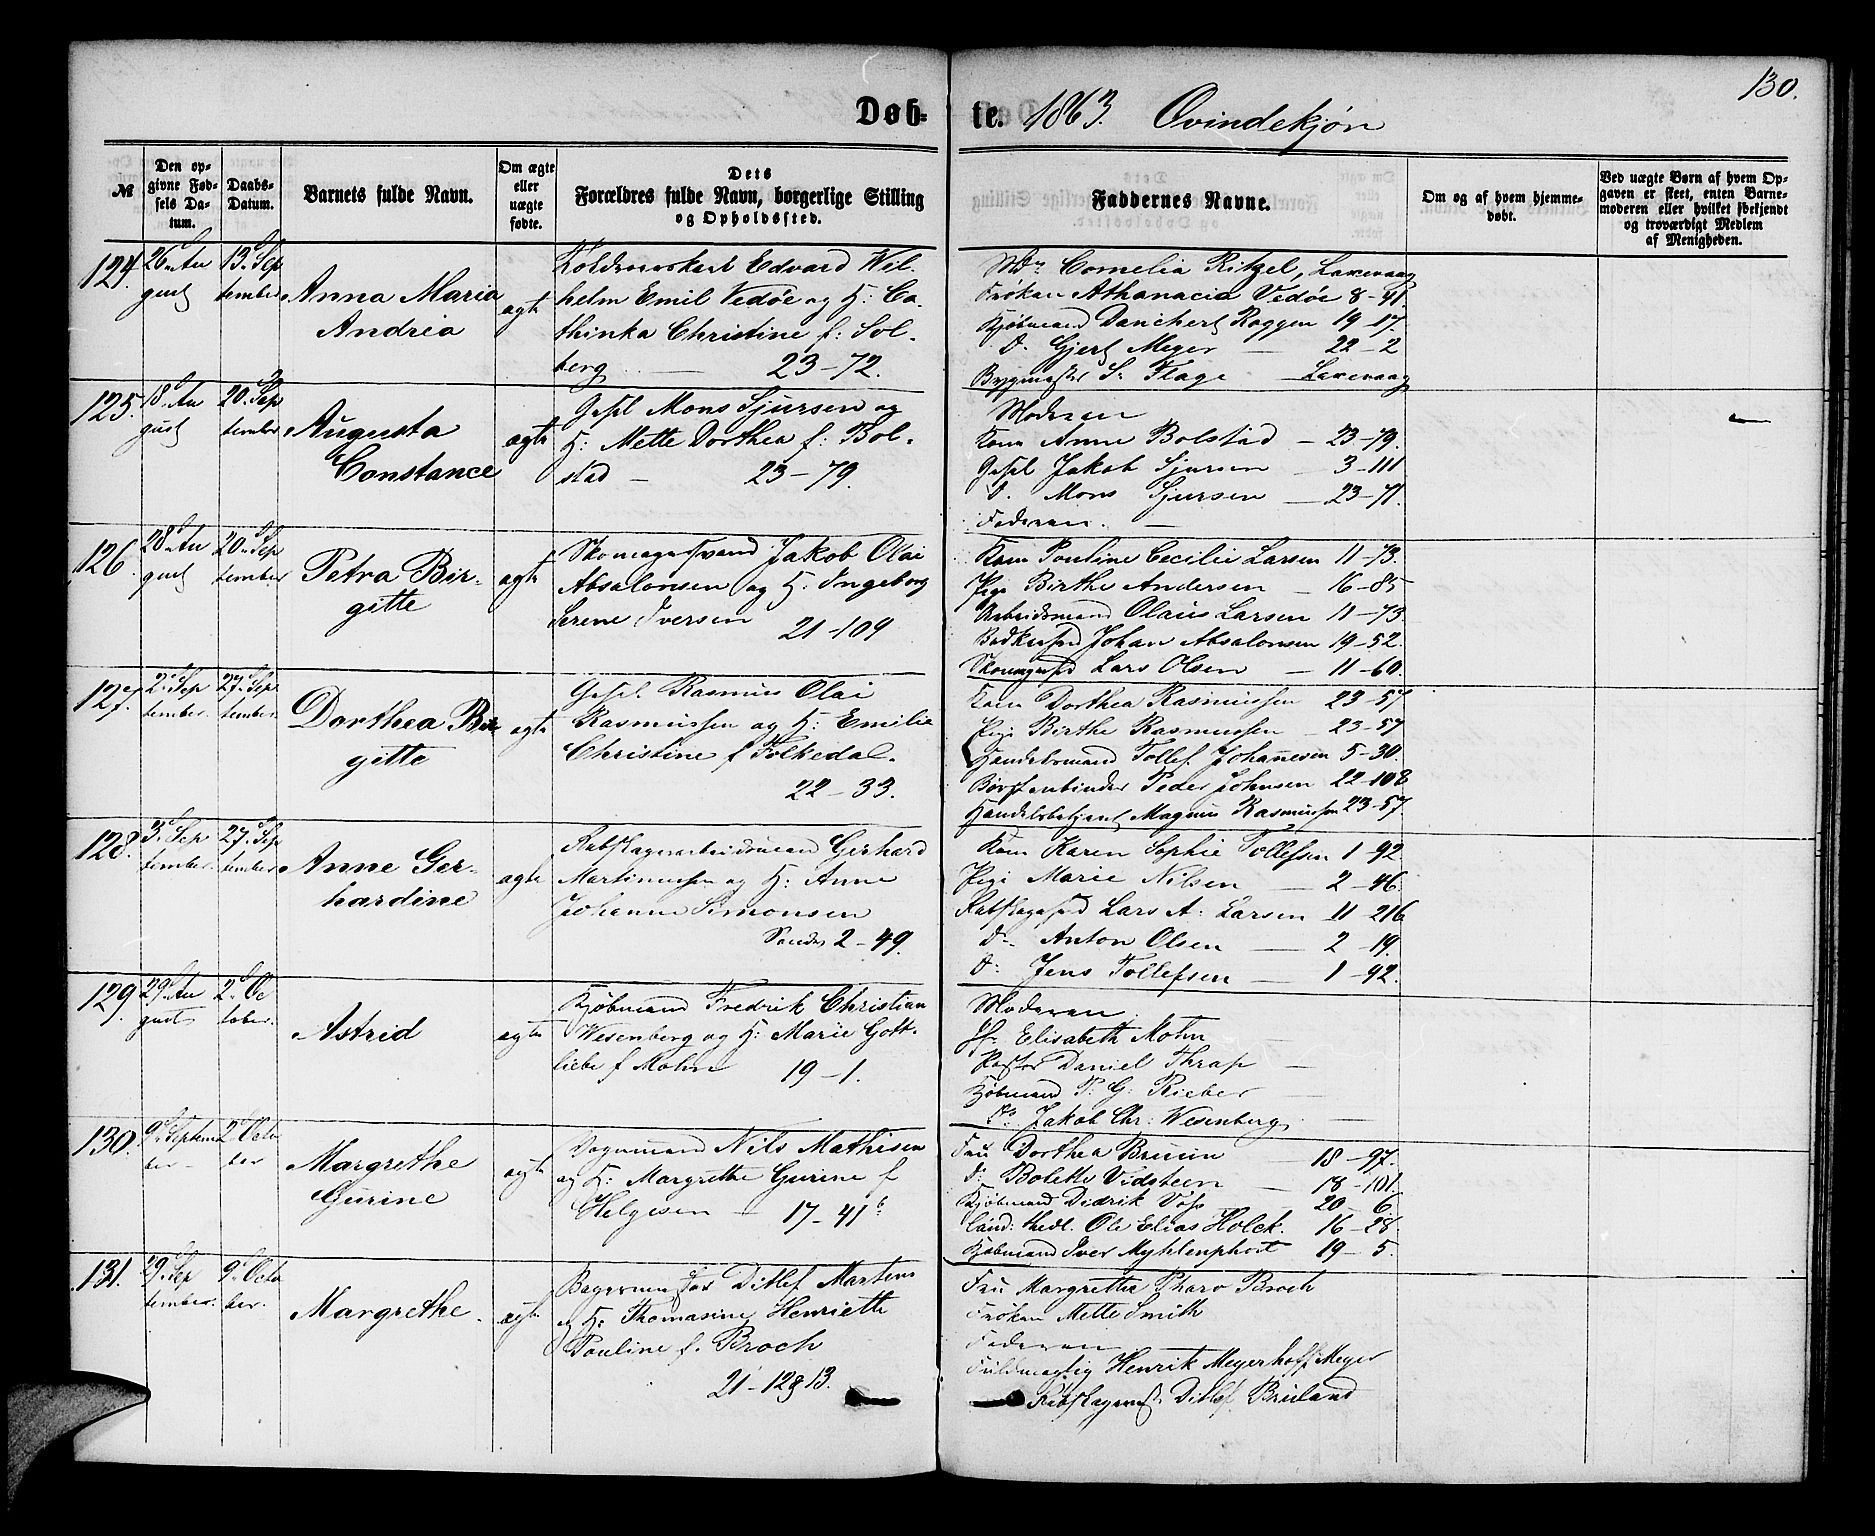 130.
Døb- te. 1863. Qvindekjøn
№
Den opgivne Fødsels Datum.
Daabs-Datum.
Barnets fulde Navn.
Om ægte eller uægte fødte.
Dets Forældres fulde Navn, borgerlige Stilling og Opholdssted.
Faddernes Navne.
Om og af hvem hjemmedøbt.
Ved uægte Børn af hvem Opgaven er skeet, enten Barnemoderen eller hvilket bekjendt og troværdigt Medlem af Menigheden.
124. 26. August 13. September
Anna Maria
Andrea
ægte
Edvard Wil-
helm Emil Vedøe og H: Ca-
thinka Christine f: Sol-
berg 23-72.
Md. Cornelia Ritzel, Laxevaag
Frøken Athanacia Vedøe 8-41.
Kjøbmand Danchert Roggen 19-17.
D. Gjert Meyer — 22-2
Bygmester S. Flage — Laxevaag
125. 18. August 20. September
Augusta
Constance
ægte
Gesel Mons Sjursen og
H. Mette Dorthea f: Bol-
stad — 23-79.
Moderen
Kone Anne Bolstad — 23-79.
Gesel Jakob Sjursen — 3-111
D. Mons Sjursen — 23-71.
Faderen. —
126. 28. August 20. September
Petra Bir-
gitte
ægte
Skomagersvend Jakob Olai
Absalonsen og H. Ingeborg
Serene Iversen 21-109
Kone Pouline Cecilie Larsen 11-73.
Pige Birthe Andersen — 16-85
Arbeidsmand Olaus Larsen 11-73
Johan Absalonsen 19-52.
Skomagersvd Lars Olsen — 11-60.
127. 2. September. 27. September.
Dorthea Bir-
gitte
ægte
Gesel Rasmus Olai
Rasmussen og H: Emilie
Christine f Folkedal.
22-33.
Kone Dorthea Rasmussen 23-57
Pige Birthe Rasmussen 23-57
Handelsmand Tollef Johannesen 5-30.
Børstenbinder Peder Johnsen 22-108
Handelsbetjent Magnus Rasmussen 23-57.
128. 3. September. 27. September
Anne Ger-
hardine
ægte
Rebslagerarbeidsmand Gerhard
Martinussen og H: Anne
Johanne Simonsen
2-49.
Kone Karen Sophie Tollefsen 1-92
Pige Marie Nilsen — 2-46.
Rebslagersvd Lars A. Larsen 11-216
D. Anton Olsen — 2-19.
D. Jens Tollefsen — 1-92.
129. 29. August 2. October.
Astrid
ægte
Kjøbmand Fredrik Christian
Wesenberg og H: Marie Gott-
liebe f Mohn 19-1.
Moderen.
Elisabeth Mohn —
Pastor Daniel Thrap —
Kjøbmand P. G. Rieber —
Do. Jakob Chr: Wesenberg —
130. 9. September 2. October
Margrethe
Gurine
ægte
Vognmand Nils Mathisen
og H: Margrethe Gurine f
Helgesen — 17-41b
Fru Dorthea Bruun — 18-97.
D. Bolette Vidsteen — 18-101.
Kjøbmand Didrik Voss — 20-6.
Cand: thedl. Ole Elias Holck. 16-28
Kjøbmand Iver Myhlenphort 19-5.
131. 29. September. 9. October.
Margrethe.
ægte
Bagermester Ditlef Martens
og H: Thomasine Henriette
Pouline f. Broch
21-12 13.
Fru Margretha Pharo Broch
Frøken Mette Smith
Faderen
Fuldmægtig Henrik Meyerhoff Meyer
Rebslagerm. Ditlef Bruland